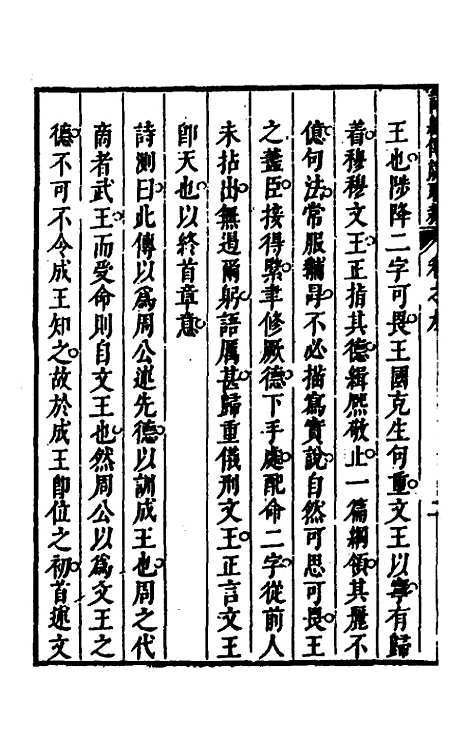 王也陟降二字可畏王國克生何重文王以寧有歸
着穆穆文王正指其德緝熙敬止一篇綱領其麗不
億句法常服黼冔不必描寫實說自然可思可畏王
之藎臣接得緊聿修厥德下手處配命二字從前人
未拈出無遏爾躬語厲甚歸重儀刑文王正言文王
卽天也以終首章意
詩測曰此傳以爲周公述先德以訓成王也周之代
商者武王而受命則自文王也然周公以爲文王之
德不可不令成王知之故於成王卽位之初首述文